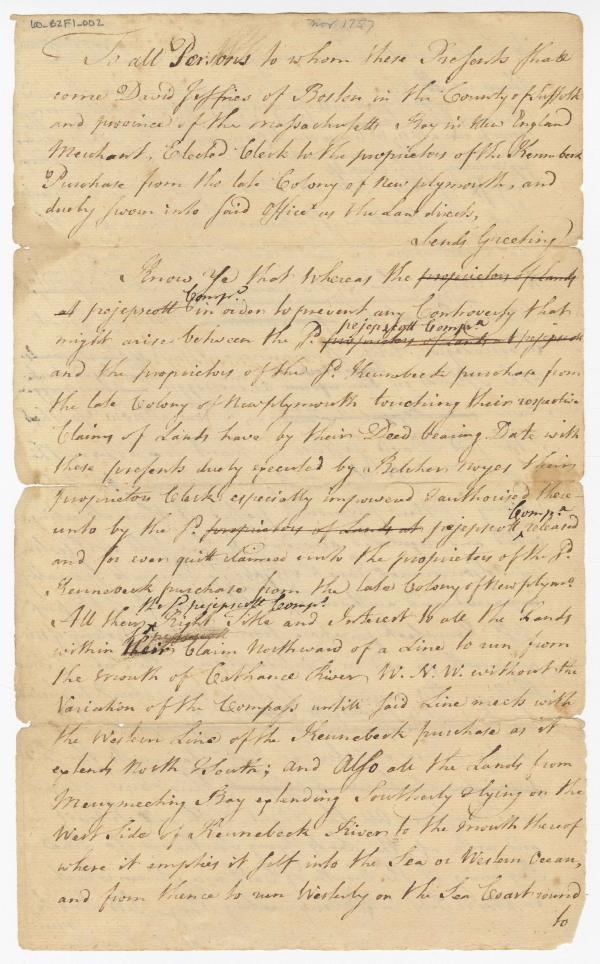 LO_B2F1_002
Nov 1757
To all Persons to whom these Presents shall
come David Jeffries of Boston in the County of Suffolk
and province of the Massachusetts Bay in New England
Merchant, Elected Clerk to the proprietors of the Kennebeck
Purchase from the late Colony of New plymouth, and
duely sworn into said Office as the Law directs,
Sends Greeting
Know Ye that whereas the proprietors of Lands
at pejepscott Compa. in order to prevent any Controversy that
might arise between the sd. proprietors of Lands at pejepscott pejepscott Compa
and the proprietors of the sd. Kennebeck purchase from
the late Colony of New plymouth touching their respective
Claims of Lands have by their Deed bearing Date with
these presents duely executed by Belcher Noyes their
proprietors Clerk especially impowered & authorised there-
unto by the sd. proprietors of Lands at pejepscott Compa released
and for ever quitt claimed unto the proprietors of the sd.
Kennebeck purchase from the late Colony of New plymo.
All their the sd. pejepscott Compa. Right Title and Interest to all the Lands
within their Claim Northward of a Line to run from
the mouth of Cathance River W. N. W. without the
Variation of the Compass untill said Line meets with
the Western Line of the Kennebeck purchase as it
extends North & South; and Also all the Lands from
Merrymeeting Bay extending Southerly & lying on the
West Side of Kennebeck River to the mouth thereof
where it empties it self into the Sea or Western Ocean,
and from thence to run Westerly on the Sea Coast round
to